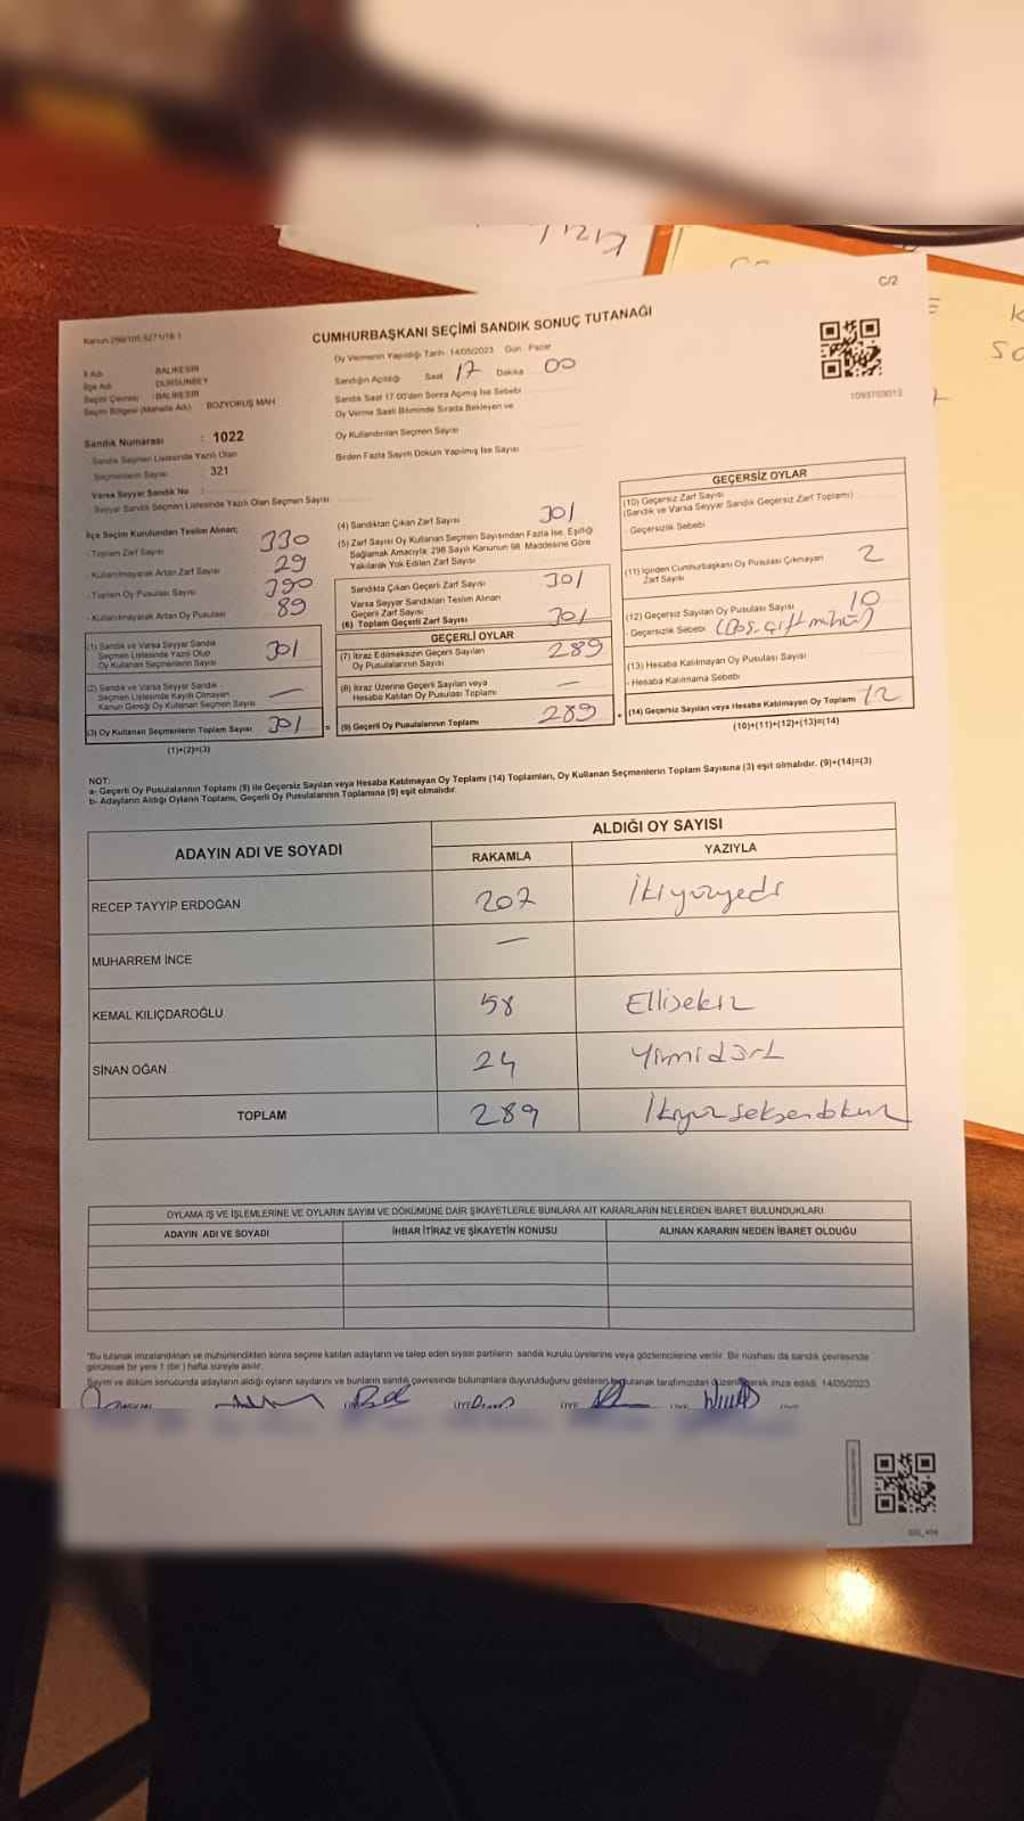 C/2
CUMHURBAŞKANI SEÇİMİ SANDIK SONUÇ TUTANAĞI
Oy Vermenin Yapıldığı Tarih : 14/05/2023 Gün : Pazar
İl Adı : BALIKESİR
İlçe Adı : DURSUNBEY
Seçim Çevresi : BALIKESİR
Seçim Bölgesi (Mahalle Adı) : BOZYOKUŞ MAH
Sandık Numarası : 1022
Sandık Seçmen Listesinde Yazılı Olan
Seçmenlerin Sayısı 321
Varsa Seyyar Sandık No :
Seyyar Sandık Seçmen Listesinde Yazılı Olan Seçmen Sayısı
Sandığın Açıldığı Saat 17 Dakika 00
Sandık Saat 17.00'den Sonra Açılmış İse Sebebi
Oy Verme Saati Bitiminde Sırada Bekleyen ve
Oy Kullandırılan Seçmen Sayısı
Birden Fazla Sayım Döküm Yapılmış İse Sayısı
İlçe Seçim Kurulundan Teslim Alınan;
- Toplam Zarf Sayısı 330
- Kullanılmayarak Artan Zarf Sayısı 29
- Toplam Oy Pusulası Sayısı 390
- Kullanılmayarak Artan Oy Pusulası 89
(1) Sandık ve Varsa Seyyar Sandık
Seçmen Listesinde Yazılı Olup
Oy Kullanan Seçmenlerin Sayısı 301
(2) Sandık ve Varsa Seyyar Sandık
Seçmen Listesinde Kayıtlı Olmayan
Kanun Gereği Oy Kullanan Seçmen Sayısı —
(3) Oy Kullanan Seçmenlerin Toplam Sayısı 301 =
(1)+(2)=(3)
(4) Sandıktan Çıkan Zarf Sayısı 301
(5) Zarf Sayısı Oy Kullanan Seçmen Sayısından Fazla İse, Eşitliği
Sağlamak Amacıyla; 298 Sayılı Kanunun 98. Maddesine Göre
Yakılarak Yok Edilen Zarf Sayısı
Sandıkta Çıkan Geçerli Zarf Sayısı 301
Varsa Seyyar Sandıktan Teslim Alınan
Geçerli Zarf Sayısı
(6) Toplam Geçerli Zarf Sayısı 301
GEÇERLİ OYLAR
(7) İtiraz Edilmeksizin Geçerli Sayılan
Oy Pusulalarının Sayısı 289
(8) İtiraz Üzerine Geçerli Sayılan veya
Hesaba Katılan Oy Pusulası Toplamı —
(9) Geçerli Oy Pusulalarının Toplamı 289 +
GEÇERSİZ OYLAR
(10) Geçersiz Zarf Sayısı
(Sandık ve Varsa Seyyar Sandık Geçersiz Zarf Toplamı)
- Geçersizlik Sebebi
(11) İçinden Cumhurbaşkanı Oy Pusulası Çıkmayan
Zarf Sayısı 2
(12) Geçersiz Sayılan Oy Pusulası Sayısı 10
- Geçersizlik Sebebi (Boş-çift mühür)
(13) Hesaba Katılmayan Oy Pusulası Sayısı
- Hesaba Katılmama Sebebi
(14) Geçersiz Sayılan veya Hesaba Katılmayan Oy Toplamı 12
(10)+(11)+(12)+(13)=(14)
NOT:
a- Geçerli Oy Pusulalarının Toplamı (9) ile Geçersiz Sayılan veya Hesaba Katılmayan Oy Toplamı (14) Toplamları, Oy Kullanan Seçmenlerin Toplam Sayısına (3) eşit olmalıdır. (9)+(14)=(3)
b- Adayların Aldığı Oyların Toplamı, Geçerli Oy Pusulalarının Toplamına (9) eşit olmalıdır.
ADAYIN ADI VE SOYADI ALDIĞI OY SAYISI
RAKAMLA YAZIYLA
RECEP TAYYİP ERDOĞAN 207 İkiyüzyedi
MUHARREM İNCE —
KEMAL KILIÇDAROĞLU 58 Ellisekiz
SİNAN OĞAN 24 Yirmidört
TOPLAM 289 İkiyüzseksendokuz
OYLAMA İŞ VE İŞLEMLERİNE VE OYLARIN SAYIM VE DÖKÜMÜNE DAİR ŞİKAYETLERLE BUNLARA AİT KARARLARIN NELERDEN İBARET BULUNDUKLARI
ADAYIN ADI VE SOYADI İHBAR İTİRAZ VE ŞİKAYETİN KONUSU ALINAN KARARIN NEDEN İBARET OLDUĞU
"Bu tutanak imzalandıktan ve mühürlendikten sonra seçime katılan adayların ve talep eden siyasi partilerin sandık kurulu üyelerine veya gözlemcilerine verilir. Bir nüshası da sandık çevresinde
görülecek bir yere 1 (bir) hafta süreyle asılır.